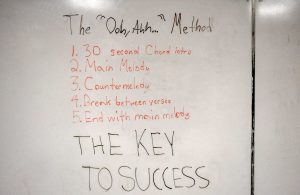 The "Ooh, Ahh..." Method
1. 30 second Chord Intro
2. Main Melody
3. Countermelody
4. Break between verses
5. End with main melody
THE KEY
TO SUCCESS